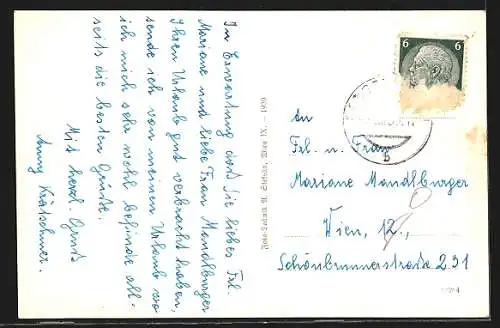 In Erwartung daß Sie liebes Frl.
Mariane und liebe Frau Mandlburger
Ihren Urlaub gut verbracht haben,
sende ich von meinen Urlaub wo
ich mich sehr wohl befinde all-
seits die besten Grüße.
Mit herzl. Gruß
Anny Kratschmer.
Foto-Technik A. Stefsky, Wien IX. - 1939
6 6
b
An
Frl. u. Frau
Mariane Mandlburger
Wien, 12.,
Schönbrunnerstraße 231